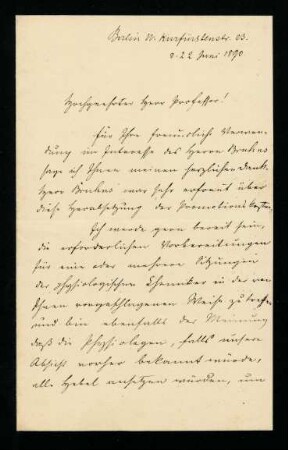 Berlin W. Kurfürstenstr. 
d. 22 Juni 1890
Hochgeehrter Herr Professor!
Für Ihre freundlich Verwen-
dung im Interesse des Herrn
sage ich Ihnen meinen herzlichen Dank.
Herr war sehr erfreut über
diese Herabsetzung der Promotionskosten.
Ich werde gern bereit sein,
die erforderlichen Vorbereitungen
für eine oder mehrere Sitzungen
der physiologischen Chemiker in der von
Ihnen vorgeschlagenen Weise zu treffen
und bin ebenfalls der Meinung
daß die Physiologen, falls unsere
Absicht vorher bekannt würde,
alle Hebel ansetzen würden, um